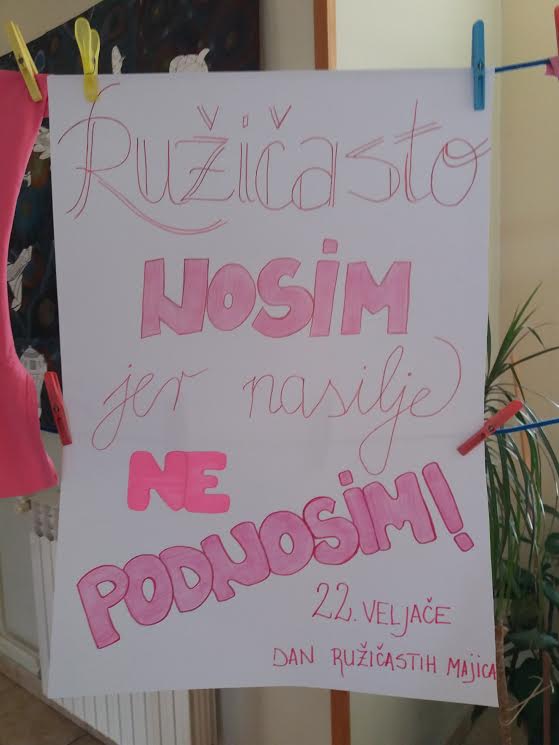 Ružičasto
NOSIM
jer nasilje
NE
PODNOSIM!
22. VELJAČE
DAN RUŽIČASTIH MAJICA